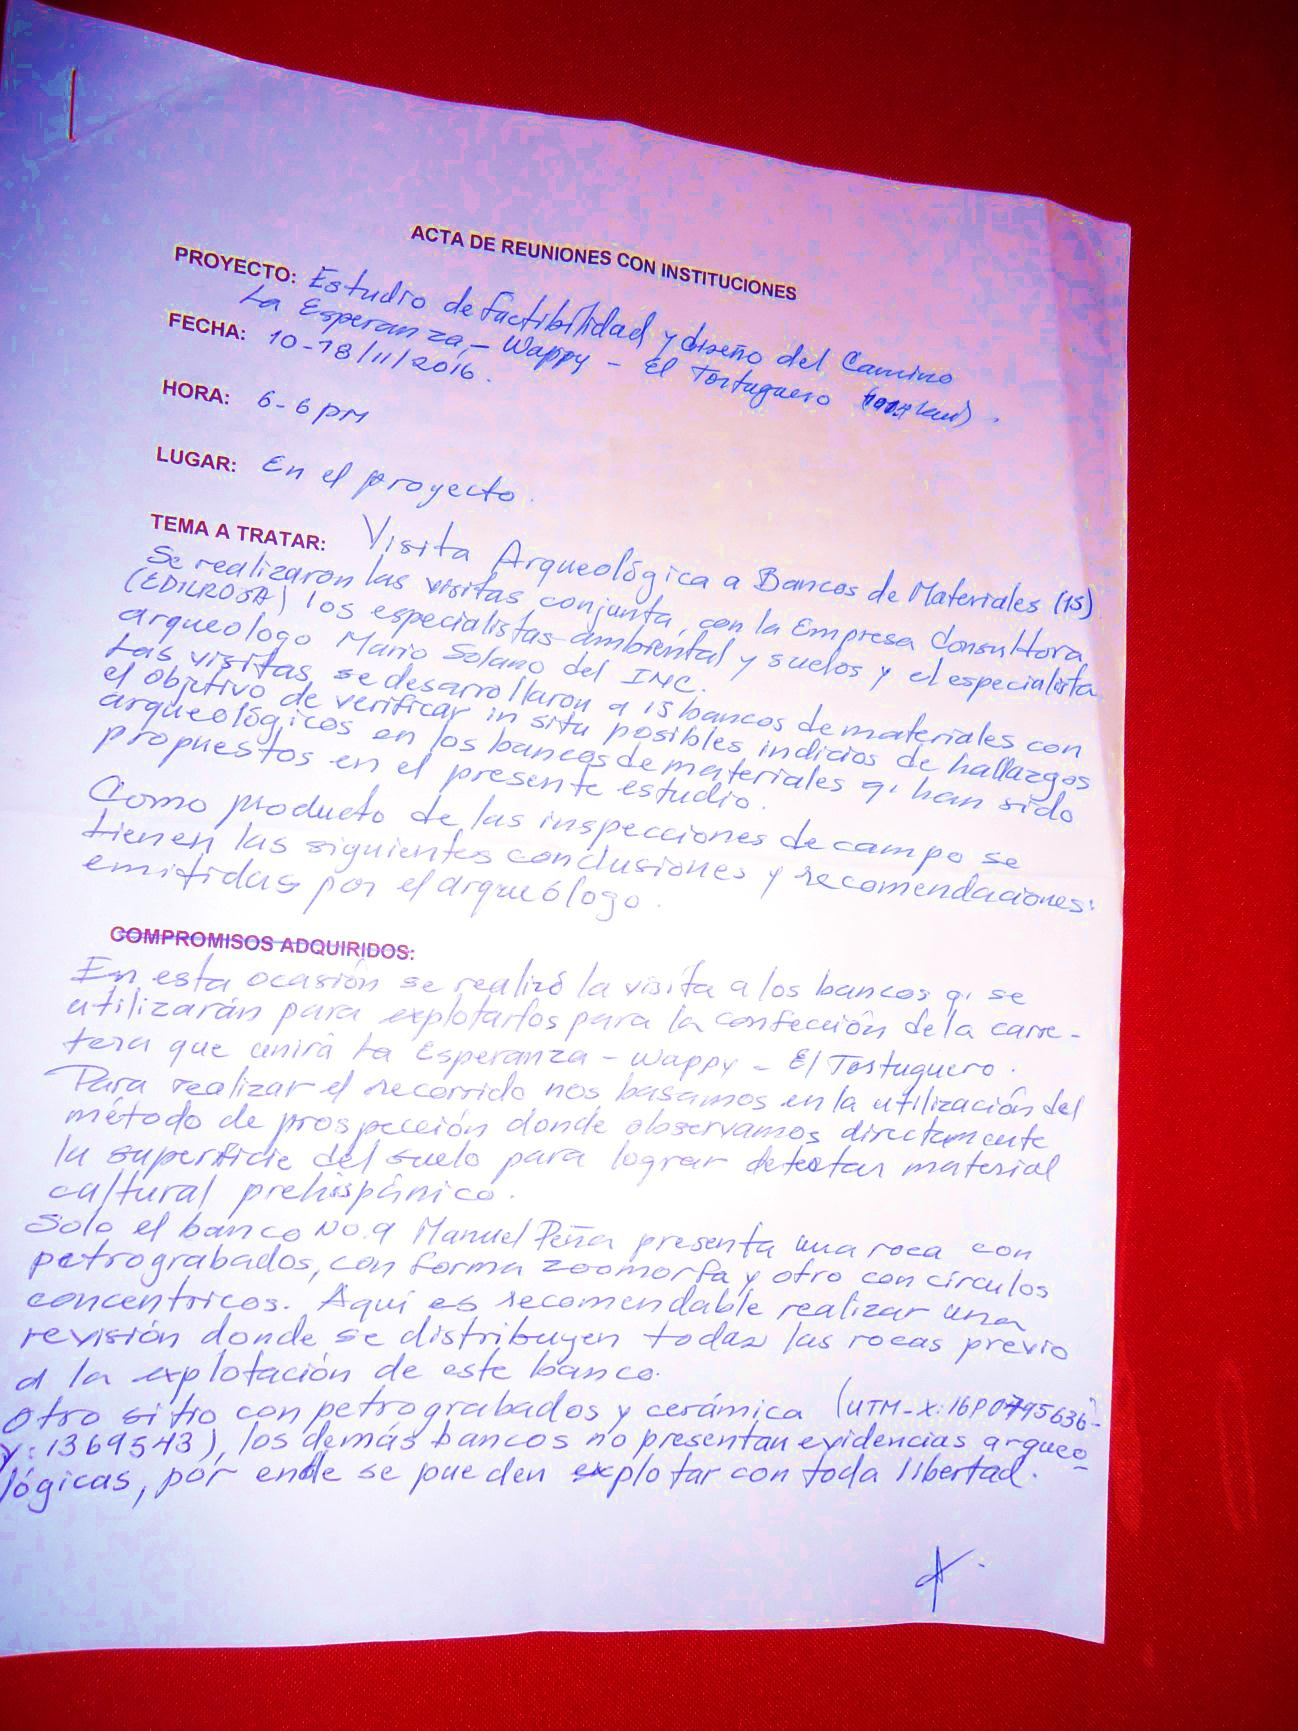 ACTA DE REUNIONES CON INSTITUCIONES
PROYECTO: Estudio de factibilidad y diseño del Camino
La Esperanza - Wappy - El Tortuguero
FECHA: 10-18/11/2016.
HORA: 6-6 pm
LUGAR: En el proyecto.
TEMA A TRATAR: Visita Arqueológica a Bancos de Materiales (15)
Se realizaron las visitas conjunta, con la Empresa Consultora
(EDICROSA) los especialistas ambiental y suelos y el especialista
arqueologo Mario Solano del INC.
Las visitas se desarrollaron a 15 bancos de materiales con
el objetivo de verificar in situ posibles indicios de hallazgos
arqueológicos en los bancos de materiales q' han sido
propuestos en el presente estudio.
Como producto de las inspecciones de campo se
tienen las siguientes conclusiones y recomendaciones:
emitidas por el arqueólogo.
COMPROMISOS ADQUIRIDOS:
En esta ocasión se realizó la visita a los bancos q' se
utilizarán para explotarlos para la confección de la carre-
tera que unirá La Esperanza - Wappy - El Tortuguero.
Para realizar el recorrido nos basamos en la utilización del
método de prospección donde observamos directamente
la superficie del suelo para lograr detectar material
cultural prehispánico.
Solo el banco No. 9 Manuel Peña presenta una roca con
petrograbados, con forma zoomorfa y otro con círculos
concentricos. Aquí es recomendable realizar una
revisión donde se distribuyen todas las rocas previo
a la explotación de este banco.
Otro sitio con petrograbados y cerámica (UTM-X:16P0795636-
Y:1369543), los demás bancos no presentan evidencias arqueo
lógicas, por ende se pueden explotar con toda libertad.